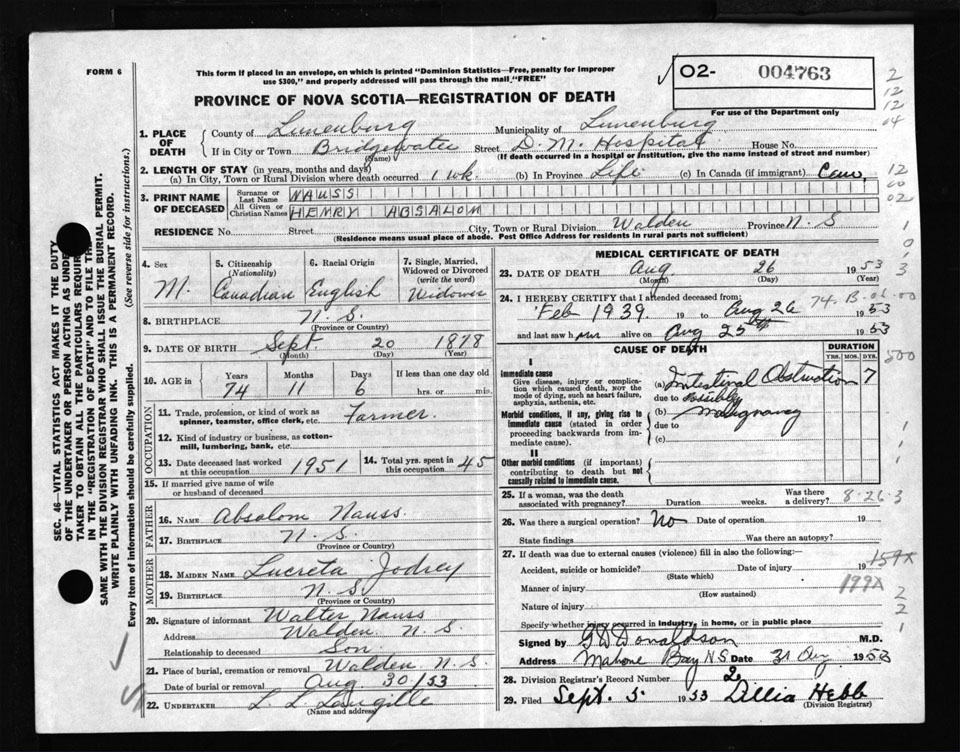 FORM 6
This form if placed in an envelope, on which is printed "Dominion Statistics—Free, penalty for improper
use $300," and properly addressed will pass through the mail "FREE"
O2- 004763
PROVINCE OF NOVA SCOTIA—REGISTRATION OF DEATH
For use of the Department only
2
12
12
04
1. PLACE OF DEATH
County of Lunenburg Municipality of Lunenburg
If in City or Town Bridgewater Street D. M. Hospital House No.
(Name) (If death occurred in a hospital or institution, give the name instead of street and number)
2. LENGTH OF STAY (in years, months and days)
(a) In City, Town or Rural Division where death occurred 1 wk. (b) In Province Life (c) In Canada (if immigrant)
12
00
02
3. PRINT NAME OF DECEASED
Surname or Last Name NAUSS
All Given or Christian Names HENRY ABSALOM
RESIDENCE No. Street City, Town or Rural Division Walden Province N.S
(Residence means usual place of abode. Post Office Address for residents in rural parts not sufficient)
4. Sex M.
5. Citizenship (Nationality) Canadian
6. Racial Origin English
7. Single, Married, Widowed or Divorced (write the word) Widower
8. BIRTHPLACE N.S.
(Province or Country)
9. DATE OF BIRTH Sept. 20 1878
(Month) (Day) (Year)
10. AGE in Years Months Days If less than one day old
74 11 6 hrs. or min.
OCCUPATION
11. Trade, profession, or kind of work as spinner, teamster, office clerk, etc. Farmer.
12. Kind of industry or business, as cotton-mill, lumbering, bank, etc.
13. Date deceased last worked at this occupation 1951
14. Total yrs. spent in this occupation 45
15. If married give name of wife or husband of deceased
FATHER
16. NAME Absalom Nauss.
17. BIRTHPLACE N.S.
(Province or Country)
MOTHER
18. MAIDEN NAME Lucreta Jodrey
19. BIRTHPLACE N.S.
(Province or Country)
20. Signature of informant Walter Nauss
Address Walden N.S.
Relationship to deceased Son.
21. Place of burial, cremation or removal Walden N.S.
Date of burial or removal Aug 30/53
22. UNDERTAKER L. L. Langille
(Name and address)
MEDICAL CERTIFICATE OF DEATH
23. DATE OF DEATH Aug. 26 1953
(Month) (Day) (Year)
24. I HEREBY CERTIFY that I attended deceased from:
Feb 1939. 19 to Aug 26 1953
and last saw h alive on Aug 25th 1953
CAUSE OF DEATH
DURATION
YRS. MOS. DYS.
I
Immediate cause
Give disease, injury or complication which caused death, NOT the mode of dying, such as heart failure, asphyxia, asthenia, etc.
(a) Intestinal Obstruction 7
due to Possibly
Morbid conditions, if any, giving rise to immediate cause (stated in order proceeding backwards from immediate cause).
(b) malignancy
due to
(c)
II
Other morbid conditions (if important) contributing to death but not causally related to immediate cause.
25. If a woman, was the death associated with pregnancy? Duration weeks. Was there a delivery? 8-26-3
26. Was there a surgical operation? No Date of operation 19
State findings Was there an autopsy?
27. If death was due to external causes (violence) fill in also the following:—
Accident, suicide or homicide? Date of injury 19
(State which)
159X
Manner of injury 199X
(How sustained)
Nature of injury
Specify whether injury occurred in industry, in home, or in public place
Signed by G D Donaldson M.D.
Address Mahone Bay N.S. Date 31 Aug 1953
28. Division Registrar's Record Number 2
29. Filed Sept. 5 1953 Lillia Hebb
(Division Registrar)
SEC. 46—VITAL STATISTICS ACT MAKES IT THE DUTY
OF THE UNDERTAKER OR PERSON ACTING AS UNDER
TAKER TO OBTAIN ALL THE PARTICULARS REQUIR
IN THE "REGISTRATION OF DEATH" AND TO FILE THE
SAME WITH THE DIVISION REGISTRAR WHO SHALL ISSUE THE BURIAL PERMIT.
WRITE PLAINLY WITH UNFADING INK. THIS IS A PERMANENT RECORD.
Every item of information should be carefully supplied. (See reverse side for instructions.)